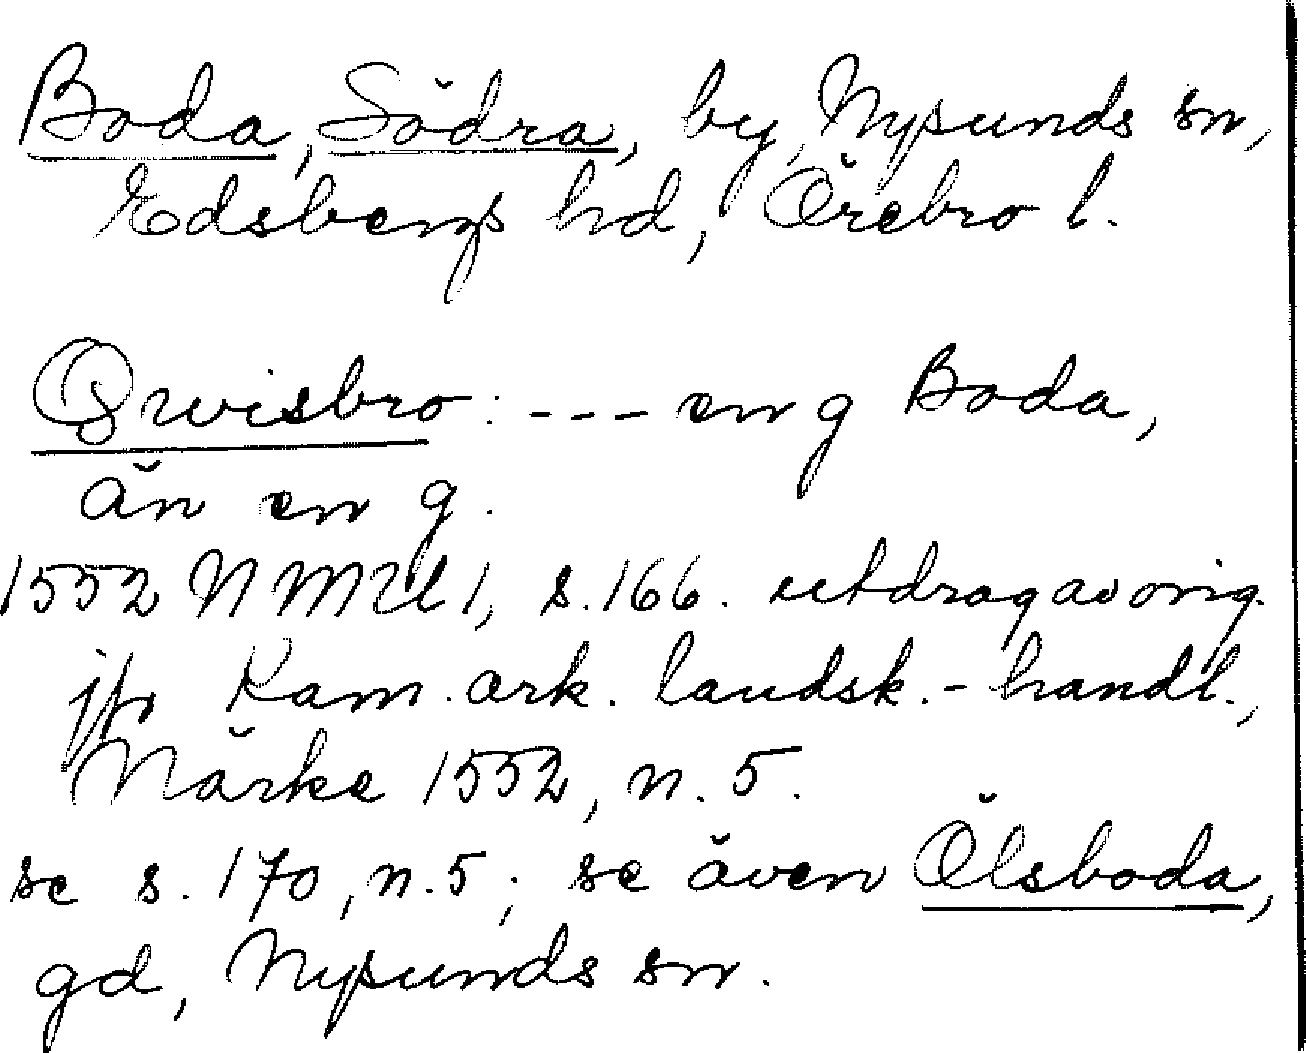 Boda, Södra, by, Nysunds sn,
Edsbergs hd, Örebro l.
Qwisbro: --- en g Boda,
än en g.
1552 NMU 1, s. 166. utdrag av orig.
jfr Kam. ark. landsk.-handl.,
Närke 1552, n. 5.
se s. 170, n. 5; se även Ölsboda,
gd, Nysunds sn.